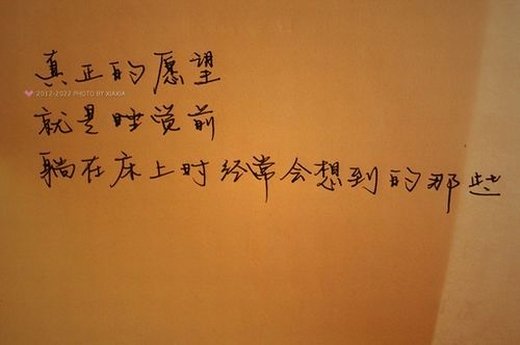 真正的愿望
2012-2022 PHOTO BY XIAXIA
就是睡觉前
躺在床上时经常会想到的那些